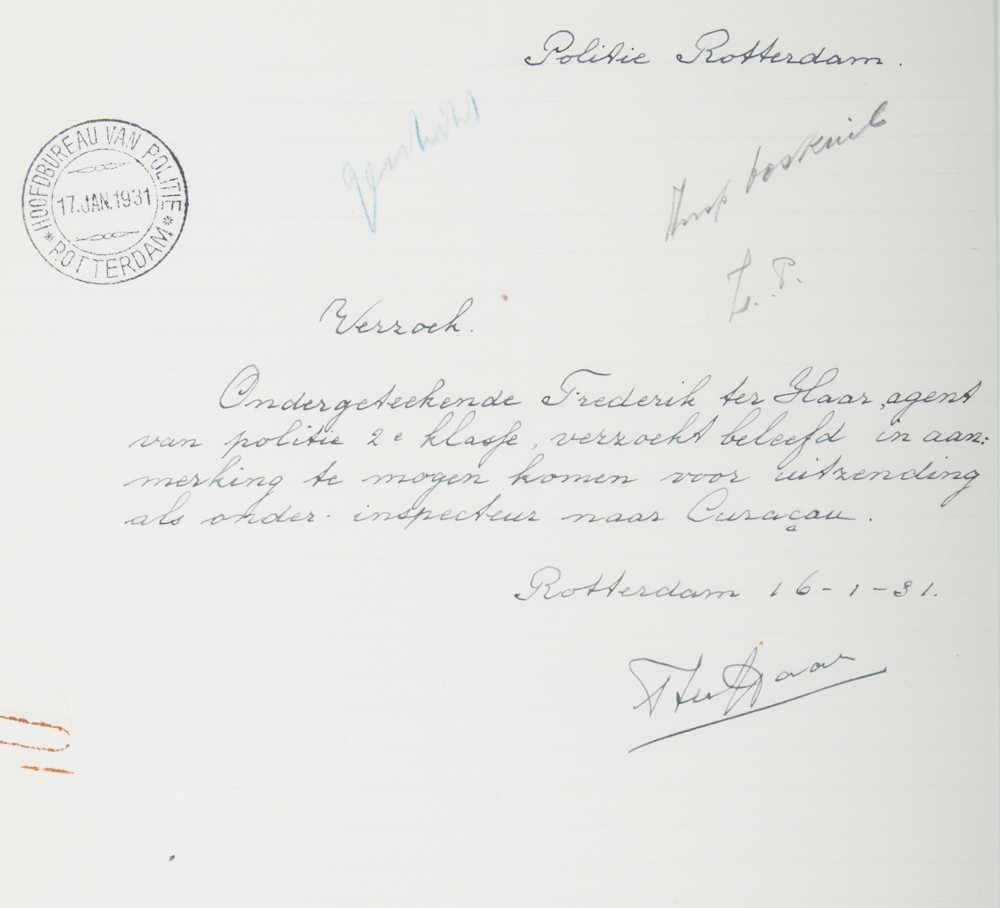 Politie Rotterdam.
HOOFDBUREAU VAN POLITIE
17.JAN.1931
* ROTTERDAM *
geschikt
Insp boskuil
Z.P.
Verzoek.
Ondergeteekende Frederik ter Haar, agent
van politie 2e klasse, verzoekt beleefd in aan:
merking te mogen komen voor uitzending
als onder-inspecteur naar Curaçau.
Rotterdam 16-1-31.
F ter Haar